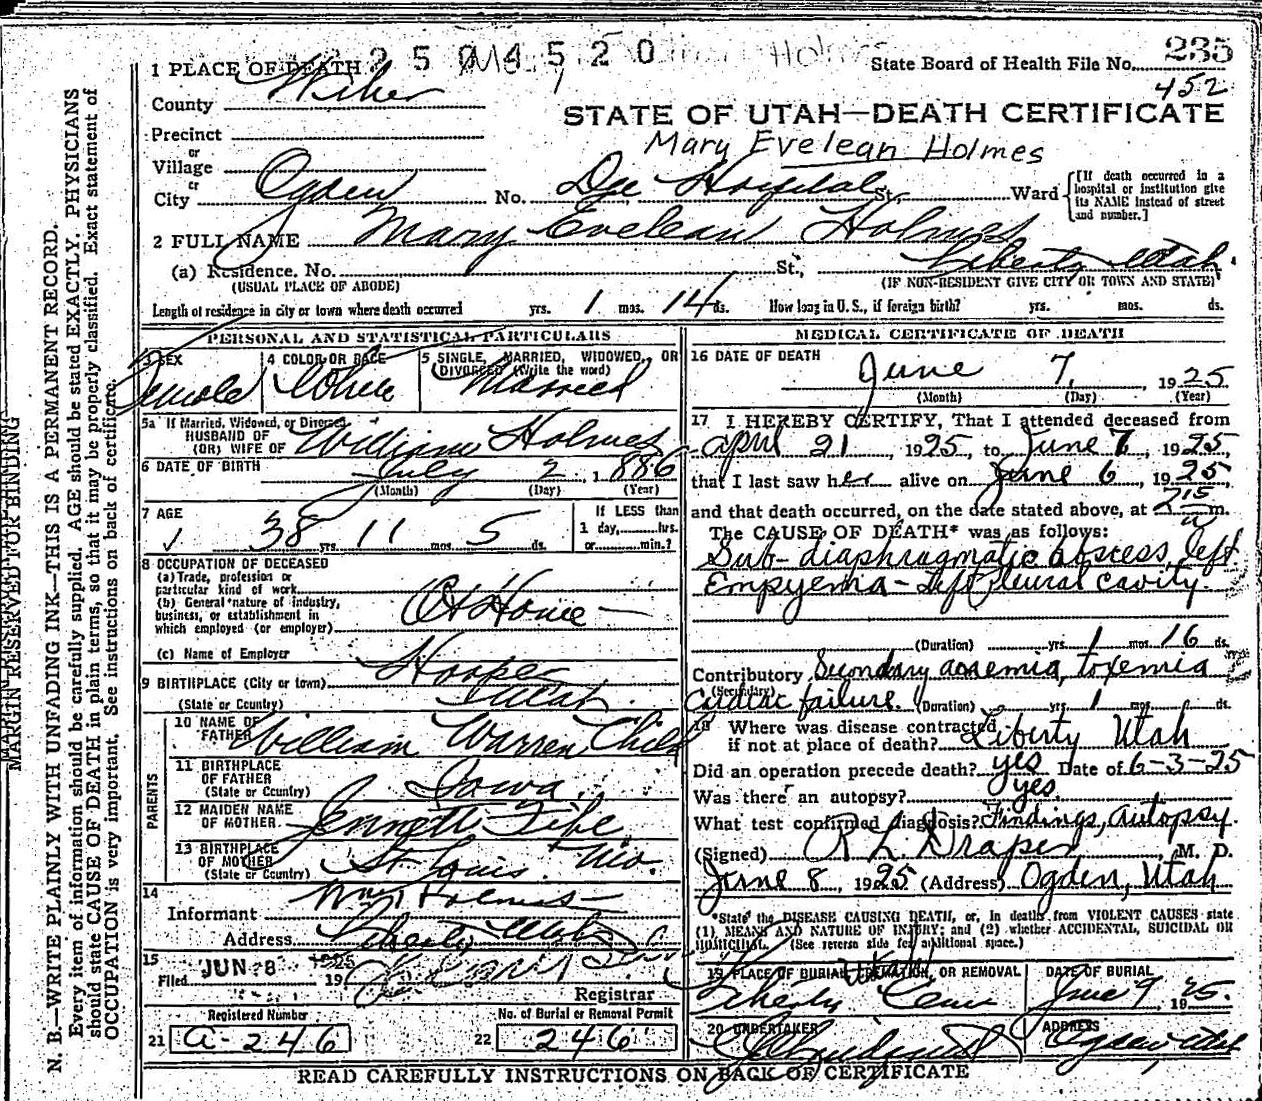 2504520
235
State Board of Health File No.
452
1 PLACE OF DEATH
County Weber
STATE OF UTAH—DEATH CERTIFICATE
Precinct
Mary Evelean Holmes
or
Village
or
City Ogden No. Dee Hospital St., Ward
[If death occurred in a hospital or institution give its NAME instead of street and number.]
2 FULL NAME Mary Evelean Holmes
(a) Residence, No. St., Liberty Utah
(USUAL PLACE OF ABODE) (IF NON-RESIDENT GIVE CITY OR TOWN AND STATE)
Length of residence in city or town where death occurred yrs. 1 mos. 14 ds. How long in U. S., if foreign birth? yrs. mos. ds.
PERSONAL AND STATISTICAL PARTICULARS
3 SEX Female
4 COLOR OR RACE White
5 SINGLE, MARRIED, WIDOWED, OR DIVORCED (Write the word) Married
5a If Married, Widowed, or Divorced
HUSBAND OF
(OR) WIFE OF William Holmes
6 DATE OF BIRTH July 2, 1886
(Month) (Day) (Year)
7 AGE
38 yrs. 11 mos. 5 ds.
If LESS than 1 day, hrs. or min.?
8 OCCUPATION OF DECEASED
(a) Trade, profession or particular kind of work
(b) General nature of industry, business, or establishment in which employed (or employer) At Home
(c) Name of Employer
9 BIRTHPLACE (City or town) Hooper
(State or Country) Utah
PARENTS
10 NAME OF FATHER William Warren Child
11 BIRTHPLACE OF FATHER (State or Country) Iowa
12 MAIDEN NAME OF MOTHER Jennett Fife
13 BIRTHPLACE OF MOTHER (State or Country) St Louis. Mo.
14
Informant Wm Holmes
Address Liberty Utah
15
Filed JUN 8 1925 19
Registrar
Registered Number
21 a-246
No. of Burial or Removal Permit
22 246
MEDICAL CERTIFICATE OF DEATH
16 DATE OF DEATH
June 7, 1925
(Month) (Day) (Year)
17 I HEREBY CERTIFY, That I attended deceased from
April 21, 1925, to June 7, 1925,
that I last saw her alive on June 6, 1925,
and that death occurred, on the date stated above, at 2 15 a m.
The CAUSE OF DEATH* was as follows:
Sub-diaphragmatic abscess, left
Empyema - left pleural cavity.
(Duration) yrs. 1 mos. 16 ds.
Contributory Secondary anemia, toxemia
(Secondary)
Cardiac failure. (Duration) yrs. 1 mos. ds.
18 Where was disease contracted
if not at place of death? Liberty Utah
Did an operation precede death? yes Date of 6-3-25
Was there an autopsy? yes.
What test confirmed diagnosis? Findings, autopsy.
(Signed) R L Draper, M. D.
June 8, 1925 (Address) Ogden, Utah
*State the DISEASE CAUSING DEATH, or, in deaths from VIOLENT CAUSES state
(1) MEANS AND NATURE OF INJURY; and (2) whether ACCIDENTAL, SUICIDAL OR
HOMICIDAL. (See reverse side for additional space.)
19 PLACE OF BURIAL, CREMATION, OR REMOVAL
Utah
Liberty Cem
DATE OF BURIAL
June 9, 1925.
20 UNDERTAKER
ADDRESS
Ogden Utah
READ CAREFULLY INSTRUCTIONS ON BACK OF CERTIFICATE
MARGIN RESERVED FOR BINDING
N. B.—WRITE PLAINLY WITH UNFADING INK—THIS IS A PERMANENT RECORD.
Every item of information should be carefully supplied. AGE should be stated EXACTLY. PHYSICIANS
should state CAUSE OF DEATH in plain terms, so that it may be properly classified. Exact statement of
OCCUPATION is very important. See instructions on back of certificate.